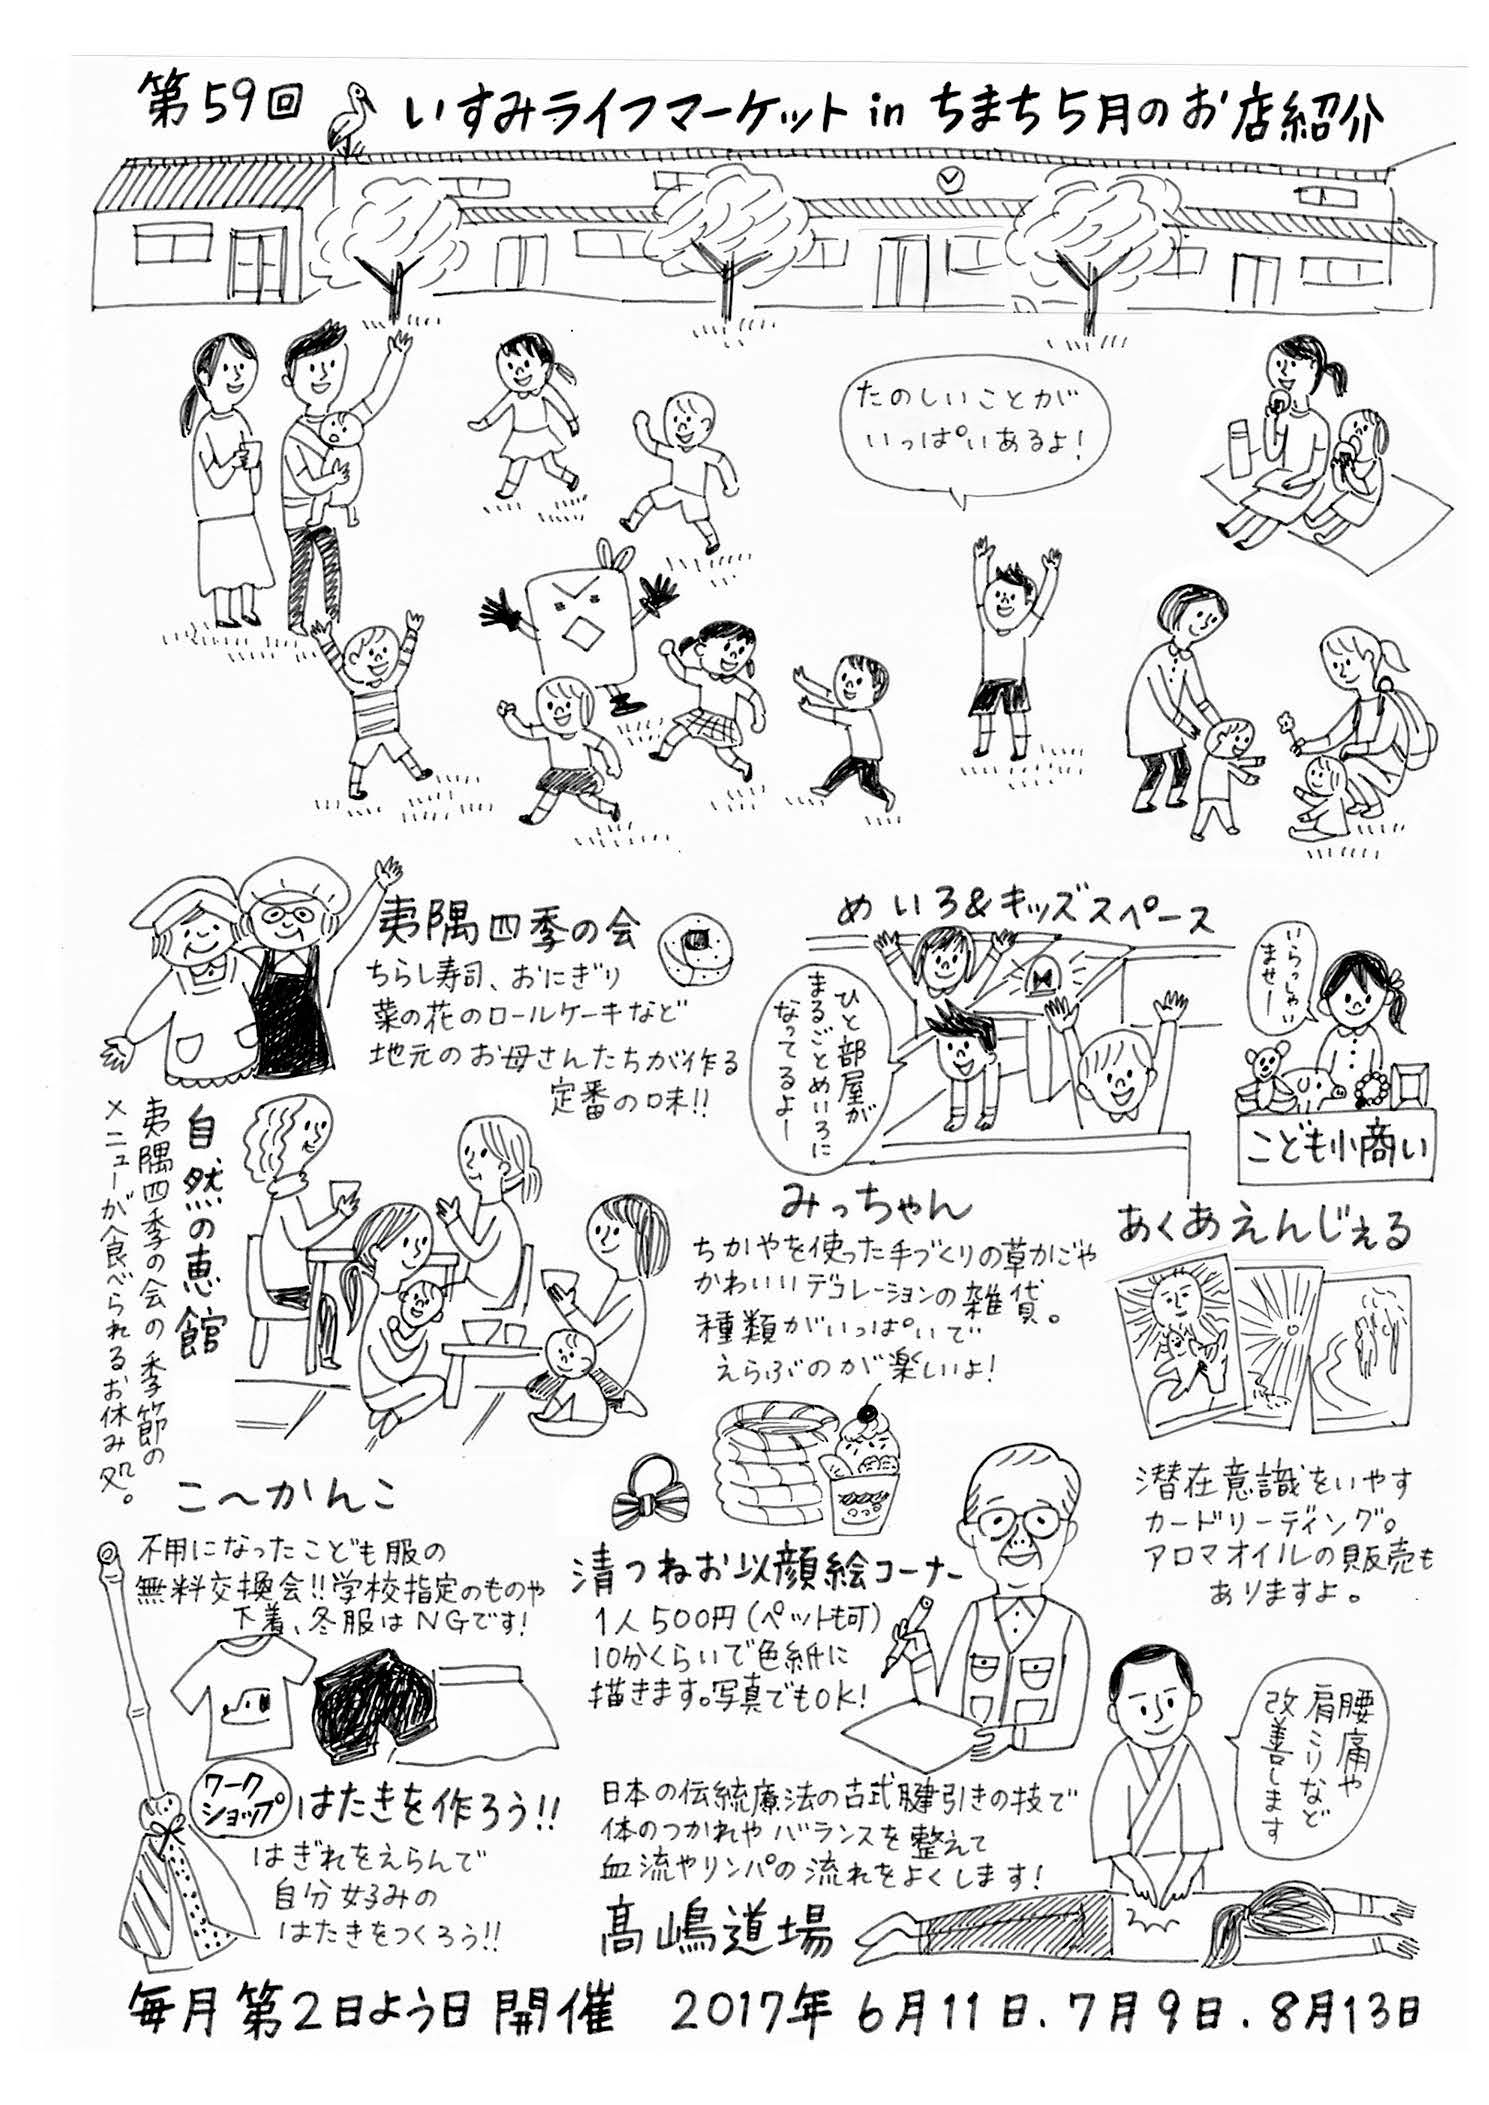 第59回 いすみライフマーケット in ちまち 5月のお店紹介
たのしいことが
いっぱいあるよ!
夷隅四季の会
ちらし寿司、おにぎり
菜の花のロールケーキなど
地元のお母さんたちが作る
定番の味!!
めいろ&キッズスペース
ひと部屋が
まるごとめいろに
なってるよー
いらっしゃい
ませー
こども小商い
自然の恵館
夷隅四季の会の季節の
メニューが食べられるお休み処。
みっちゃん
ちがやを使った手づくりの草かごや
かわいいデコレーションの雑貨。
種類がいっぱいで
えらぶのが楽しいよ!
あくあえんじぇる
潜在意識をいやす
カードリーディング。
アロマオイルの販売も
ありますよ。
こ〜かんこ
不用になったこども服の
無料交換会!!学校指定のものや
下着、冬服はNGです!
清つねお似顔絵コーナー
1人500円(ペットも可)
10分くらいで色紙に
描きます。写真でもOK!
ワーク
ショップ
はたきを作ろう!!
はぎれをえらんで
自分好みの
はたきをつくろう!!
日本の伝統療法の古式腱引きの技で
体のつかれやバランスを整えて
血流やリンパの流れをよくします!
髙嶋道場
腰痛や
肩こりなど
改善します
毎月第2日よう日開催 2017年 6月11日.7月9日.8月13日